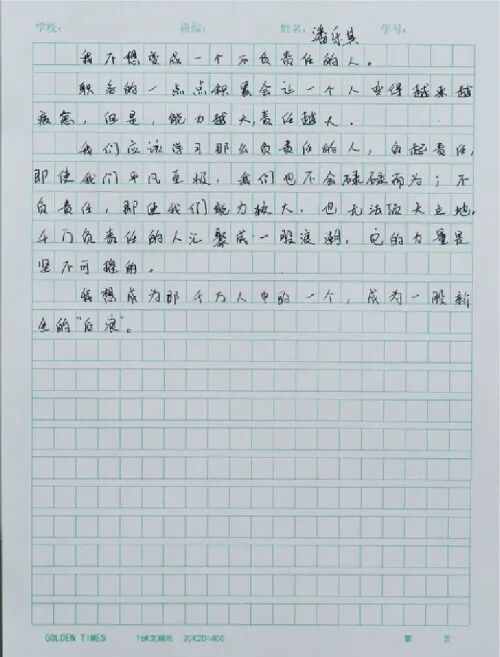 学校: 班级: 姓名: 潘乐其 学号:
我不想变成一个不负责任的人。
职务的一点点积累会让一个人变得越来越
疲惫，但是，能力越大，责任越大。
我们应该学习那么负责任的人，自起责任，
即使我们平凡至极，我们也不会碌碌而为；不
负责任，即使我们能力极大，也无法顶天立地，
千门负责任的人汇聚成一股浪潮，它的力量是
坚不可摧的。
我想成为那千万人中的一个，成为一股新
的"后浪"。
GOLDEN TIMES 16K文稿纸 20X20=400 第 页